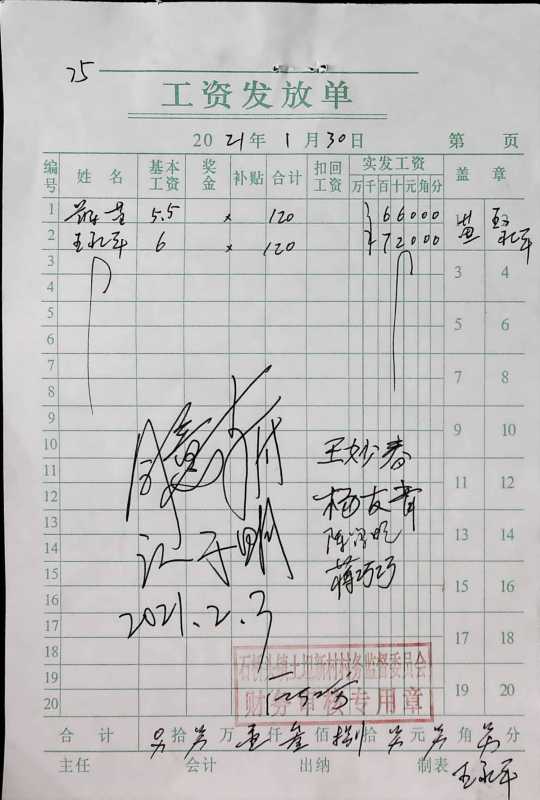 25
工资发放单
2021年1月30日 第 页
编号 姓名 基本工资 奖金 补贴 合计 扣回工资 实发工资 万千百十元角分 盖章
1 5.5 × 120 66000
2 王永军 6 × 120 72000 王永军
3 3 4
4
5 5 6
6
7 7 8
8
9 9 10
10 王妙春
11 11 12
12 杨友常
13 13 14
14
15 蒋巧巧 15 16
16
2021.2.3
17 17 18
18
石桥头镇上迎新村村务监督委员会
19 19 20
财务审核专用章
20
合计 另拾另万壹仟叁佰捌拾另元另角另分
主任 会计 出纳 制表 王永军